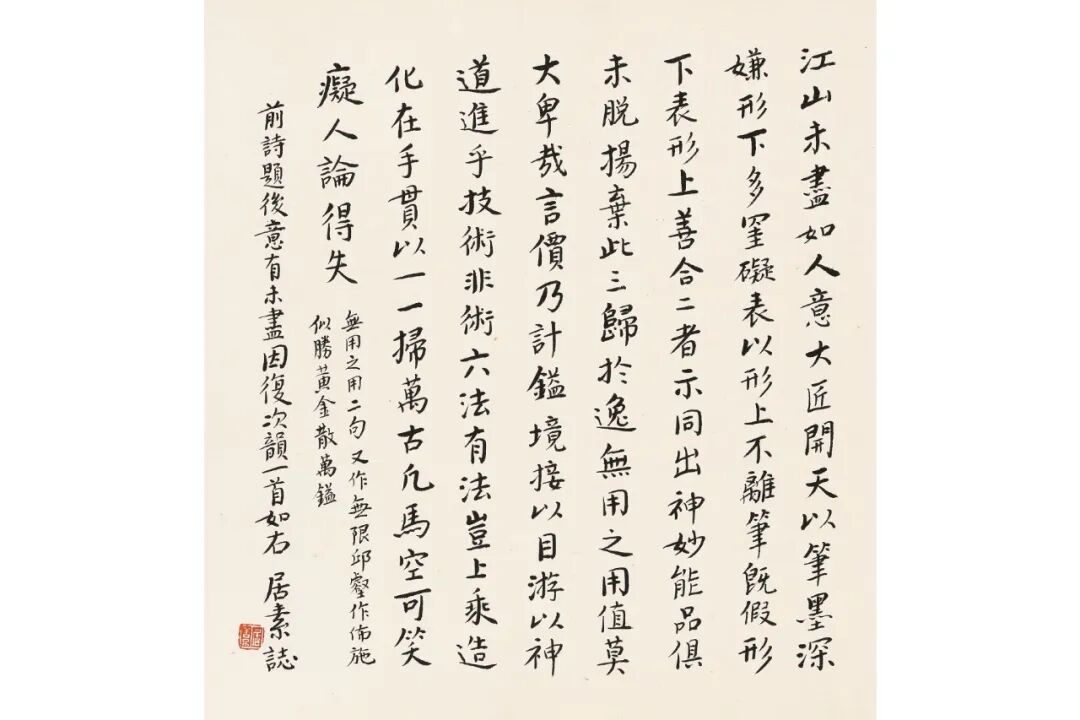 江山未盡如人意大匠開天以筆墨深
嫌形下多罣礙表以形上不離筆既假形
下表形上善合二者示同出神妙能品俱
未脫揚棄此三歸於逸無用之用值莫
大卑哉言價乃計鎰境接以目游以神
道進乎技術非術六法有法豈上乘造
化在手貫以一一掃萬古凡馬空可笑
癡人論得失
無用之用二句又作無限邱壑作布施
似勝黃金散萬鎰
前詩題後意有未盡因復次韻一首如右 居素誌